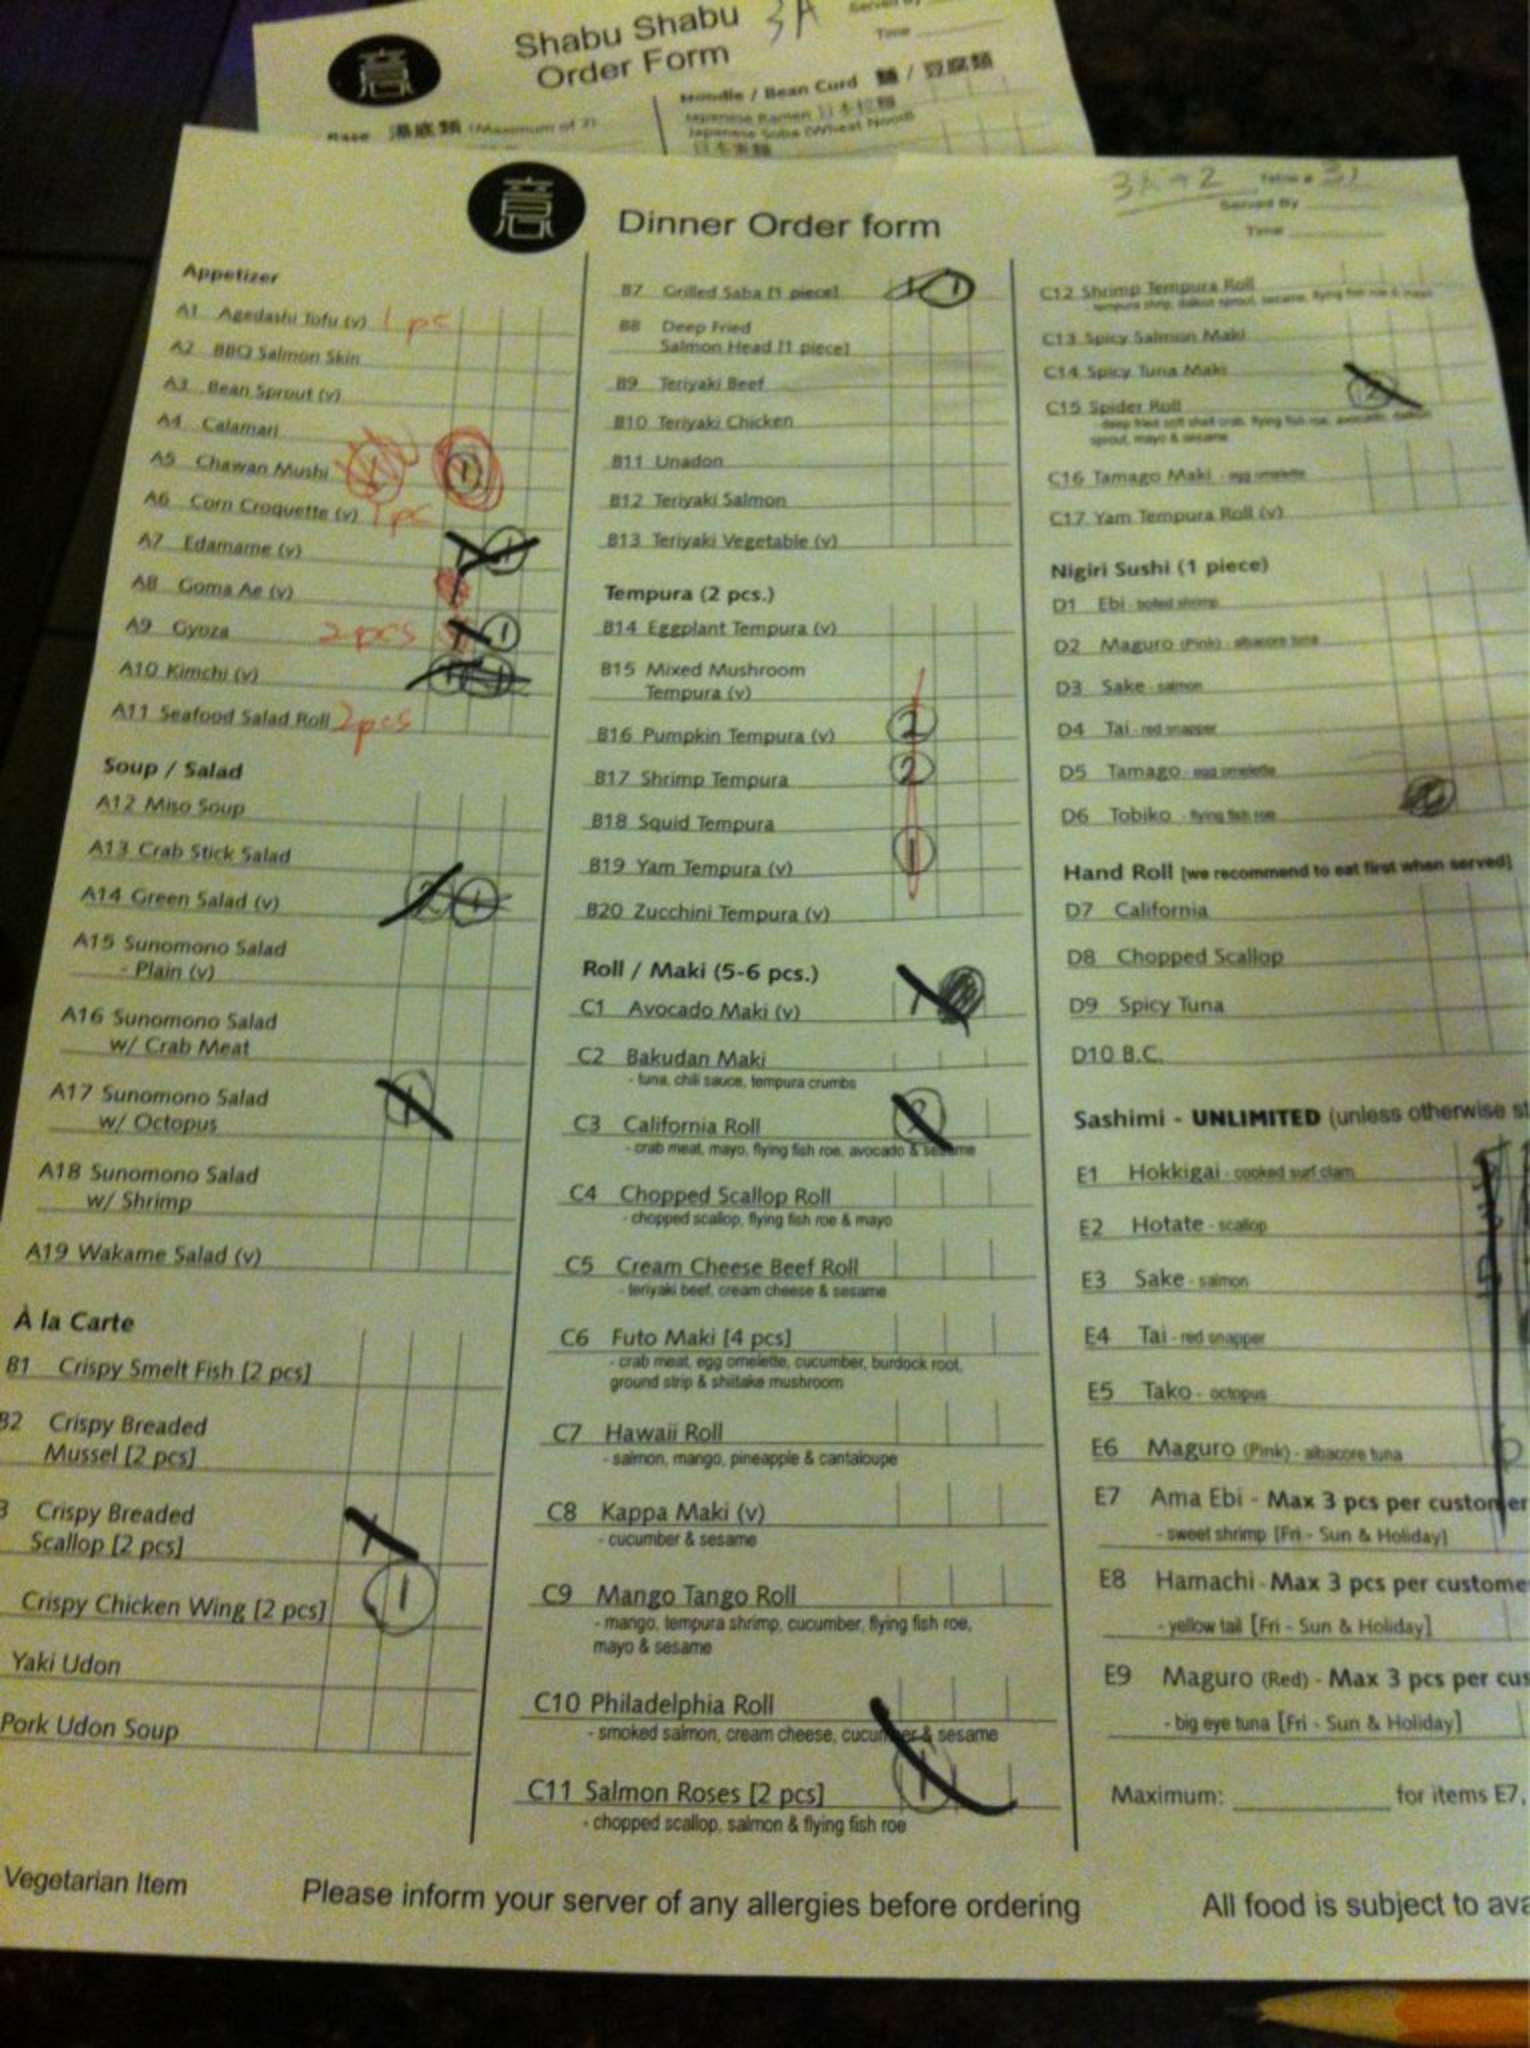 意
Shabu Shabu 3A
Order Form
Time
Noodle / Bean Curd 麵 / 豆腐類
Japanese Ramen 日本拉麵
Base 湯底類 (Maximum of 2)
Japanese Soba (Wheat Nood
意
Dinner Order form
Table #
Served By
Time
Appetizer
A1 Agedashi Tofu (v) 1 pc
A2 BBQ Salmon Skin
A3 Bean Sprout (v)
A4 Calamari
A5 Chawan Mushi 1
A6 Corn Croquette (v) 1 pc
A7 Edamame (v) 1
A8 Goma Ae (v)
A9 Gyoza 2 pcs 1 1
A10 Kimchi (v)
A11 Seafood Salad Roll 2 pcs
Soup / Salad
A12 Miso Soup
A13 Crab Stick Salad
A14 Green Salad (v) 2 1
A15 Sunomono Salad
- Plain (v)
A16 Sunomono Salad
w/ Crab Meat
A17 Sunomono Salad 1
w/ Octopus
A18 Sunomono Salad
w/ Shrimp
A19 Wakame Salad (v)
À la Carte
B1 Crispy Smelt Fish [2 pcs]
B2 Crispy Breaded
Mussel [2 pcs]
3 Crispy Breaded
Scallop [2 pcs] 1
Crispy Chicken Wing [2 pcs] 1
Yaki Udon
Pork Udon Soup
B7 Grilled Saba [1 piece] 1
B8 Deep Fried
Salmon Head [1 piece]
B9 Teriyaki Beef
B10 Teriyaki Chicken
B11 Unadon
B12 Teriyaki Salmon
B13 Teriyaki Vegetable (v)
Tempura (2 pcs.)
B14 Eggplant Tempura (v)
B15 Mixed Mushroom
Tempura (v)
B16 Pumpkin Tempura (v) 2
B17 Shrimp Tempura 2
B18 Squid Tempura
B19 Yam Tempura (v) 1
B20 Zucchini Tempura (v)
Roll / Maki (5-6 pcs.)
C1 Avocado Maki (v) 1
C2 Bakudan Maki
- tuna, chili sauce, tempura crumbs
C3 California Roll 2
- crab meat, mayo, flying fish roe, avocado & sesame
C4 Chopped Scallop Roll
- chopped scallop, flying fish roe & mayo
C5 Cream Cheese Beef Roll
- teriyaki beef, cream cheese & sesame
C6 Futo Maki [4 pcs]
- crab meat, egg omelette, cucumber, burdock root,
ground strip & shiitake mushroom
C7 Hawaii Roll
- salmon, mango, pineapple & cantaloupe
C8 Kappa Maki (v)
- cucumber & sesame
C9 Mango Tango Roll
- mango, tempura shrimp, cucumber, flying fish roe,
mayo & sesame
C10 Philadelphia Roll
- smoked salmon, cream cheese, cucumber & sesame
C11 Salmon Roses [2 pcs] 1
- chopped scallop, salmon & flying fish roe
C12 Shrimp Tempura Roll
C13 Spicy Salmon Maki
C14 Spicy Tuna Maki
C15 Spider Roll 2
deep fried soft shell crab, flying fish roe, avocado, daikon
sprout, mayo & sesame
C16 Tamago Maki - egg omelette
C17 Yam Tempura Roll (v)
Nigiri Sushi (1 piece)
D1 Ebi - boiled shrimp
D2 Maguro (Pink) - albacore tuna
D3 Sake - salmon
D4 Tai - red snapper
D5 Tamago - egg omelette
D6 Tobiko - flying fish roe
Hand Roll [we recommend to eat first when served]
D7 California
D8 Chopped Scallop
D9 Spicy Tuna
D10 B.C.
Sashimi - UNLIMITED (unless otherwise st
E1 Hokkigai - cooked surf clam
E2 Hotate - scallop
E3 Sake - salmon
E4 Tai - red snapper
E5 Tako - octopus
E6 Maguro (Pink) - albacore tuna
E7 Ama Ebi - Max 3 pcs per customer
- sweet shrimp [Fri - Sun & Holiday]
E8 Hamachi - Max 3 pcs per custome
- yellow tail [Fri - Sun & Holiday]
E9 Maguro (Red) - Max 3 pcs per cus
- big eye tuna [Fri - Sun & Holiday]
Maximum: for items E7,
Vegetarian Item
Please inform your server of any allergies before ordering
All food is subject to ava